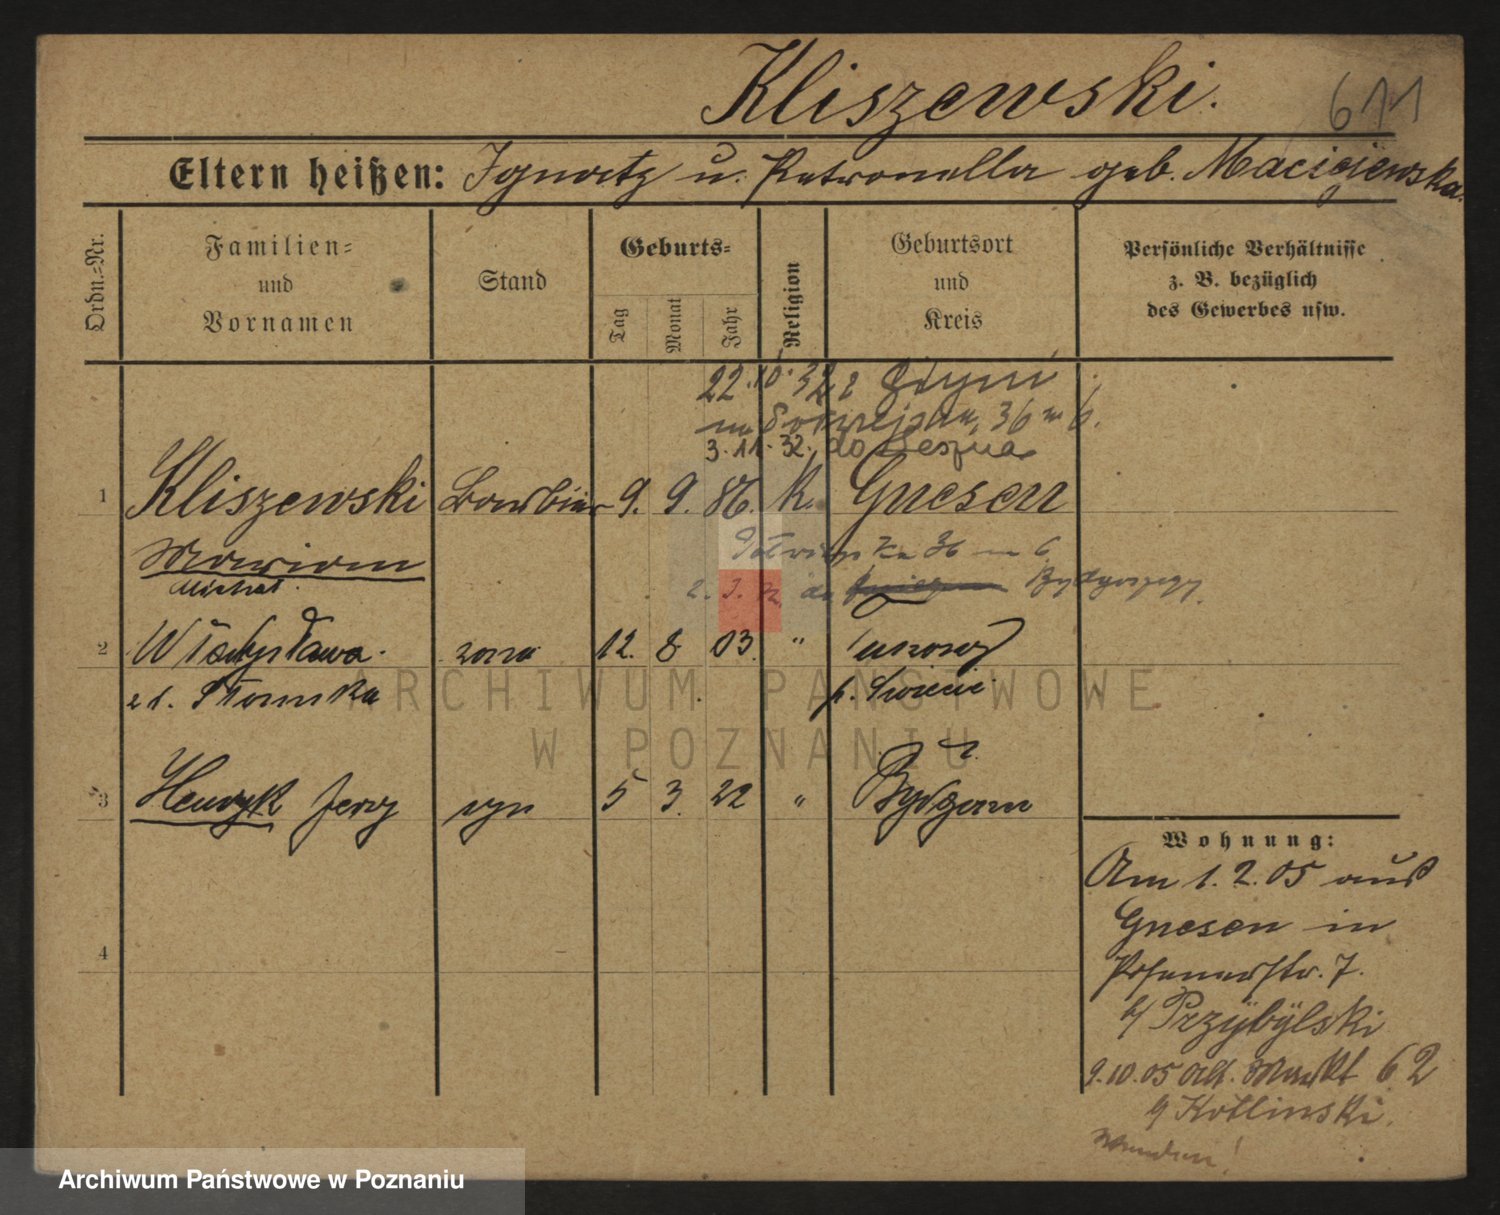 Kliszewski.
611
Eltern heißen: Ignatz u. Petronella geb. Maciejewska.
Ordn.-Nr.
Familien-
und
Vornamen
Stand
Geburts-
Tag
Monat
Jahr
Religion
Geburtsort
und
Kreis
Persönliche Verhältnisse
z. B. bezüglich
des Gewerbes usw.
22.10.32 z Gdyni
36 m 6.
3.11.32. do Leszna
1 Kliszewski Barbier 9. 9. 86. k. Gnesen
Marian
Michał
36 m 6
2. 3. do Bydgoszczy
2 Władysława żona 12. 8. 03. "
z d. Słomska p. Świecie
3 Henryk Jerzy syn 5 3. 22 "
4
Wohnung:
Am 1.2.05 aus
Gnesen in
Posenerstr. 7.
b/ Przybylski
9.10.05 Alt. Markt 62
b/ Kotlinski.
ARCHIWUM PAŃSTWOWE
W POZNANIU
Archiwum Państwowe w Poznaniu